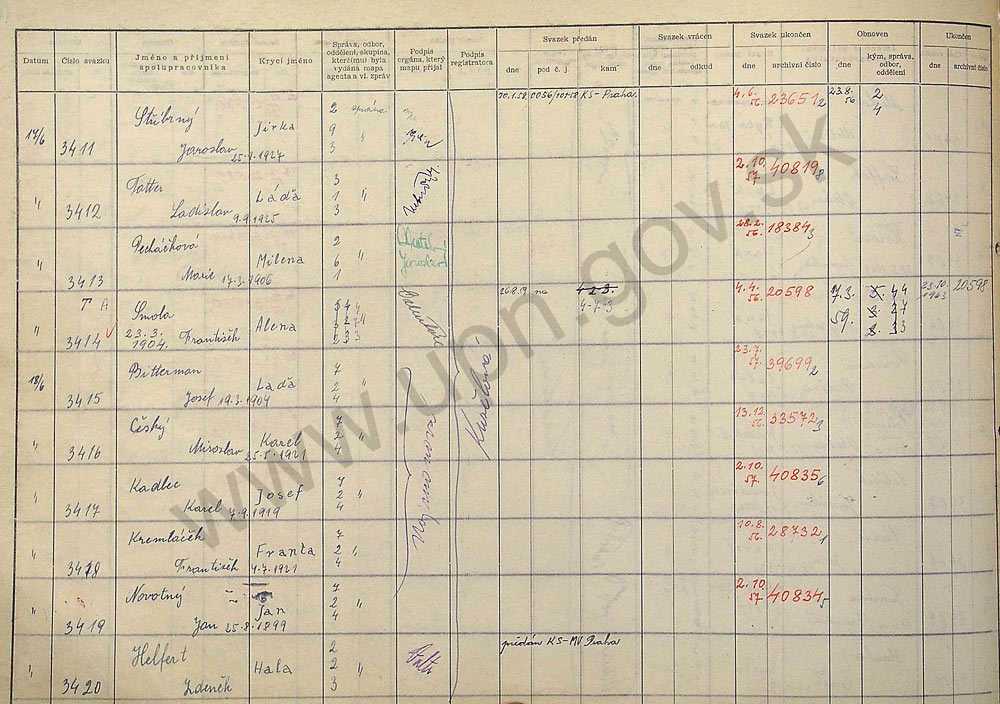 Datum
Číslo svazku
Jméno a příjmení spolupracovníka
Krycí jméno
Správa, odbor, oddělení, skupina, které(mu) byla vydána mapa agenta a vl. zpráv
Podpis orgána, který mapu přijal
Podpis registratora
Svazek předán
dne
pod č. j.
kam
Svazek vrácen
dne
odkud
Svazek ukončen
dne
archivní číslo
Obnoven
dne
kým, správa, odbor, oddělení
Ukončen
dne
archivní číslo
17/6 3411 Stříbrný Jaroslav 25.1.1927 Jirka 2 správa 9 " 3 KS-Praha. 4.6. 56. 23651 2 23.8. 56 2 4
" 3412 Tatter Ladislav 9.9.1925 Láďa 3 1 " 3 2.10. 57. 40819 8
" 3413 Pecháčková Marie 17.3.1906 Milena 2 6 " 1 28.2. 56. 18384 3
" 3414 Smola 23.3. 1904. František Alena 4-7-3 4.4. 56. 20598 7.3. 59. 23.10. 1963 20598
18/6 3415 Bitterman Josef 19.3.1904 Laďa 7 2 " 4 23.7. 57. 39699 2
" 3416 Český Miroslav 25.5.1921 Karel 7 2 " 4 13.12. 56. 33572 3
" 3417 Kadlec Karel 7.9.1919 Josef 7 2 " 4 2.10. 57. 40835 6
" 3418 Kremláček František 4.7.1921 Franta 7 2 " 4 10.8. 56. 28732 1
" 3419 Novotný Jan 25.8.1899 Jan 7 2 " 4 2.10. 57. 40834 5
" 3420 Helfert Zdeněk Hala 2 2 " 3 předán KS-MV Praha
www.upn.gov.sk